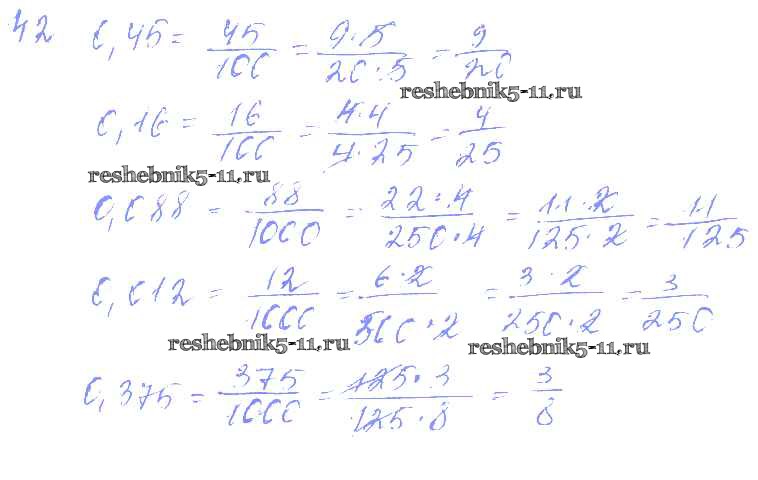 42 0,45 = 45/100 = 9·5/20·5 = 9/20
reshebnik5-11.ru
0,16 = 16/100 = 4·4/4·25 = 4/25
reshebnik5-11.ru
0,088 = 88/1000 = 22·4/250·4 = 11·2/125·2 = 11/125
0,012 = 12/1000 = 6·2/500·2 = 3·2/250·2 = 3/250
reshebnik5-11.ru reshebnik5-11.ru
0,375 = 375/1000 = 125·3/125·8 = 3/8